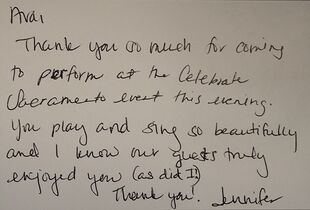 Avai,
Thank you so much for coming
to perform at the Celebrate
Sacramento event this evening.
You play and sing so beautifully
and I know our guests truly
enjoyed you (as did I)
Thank you! Jennifer